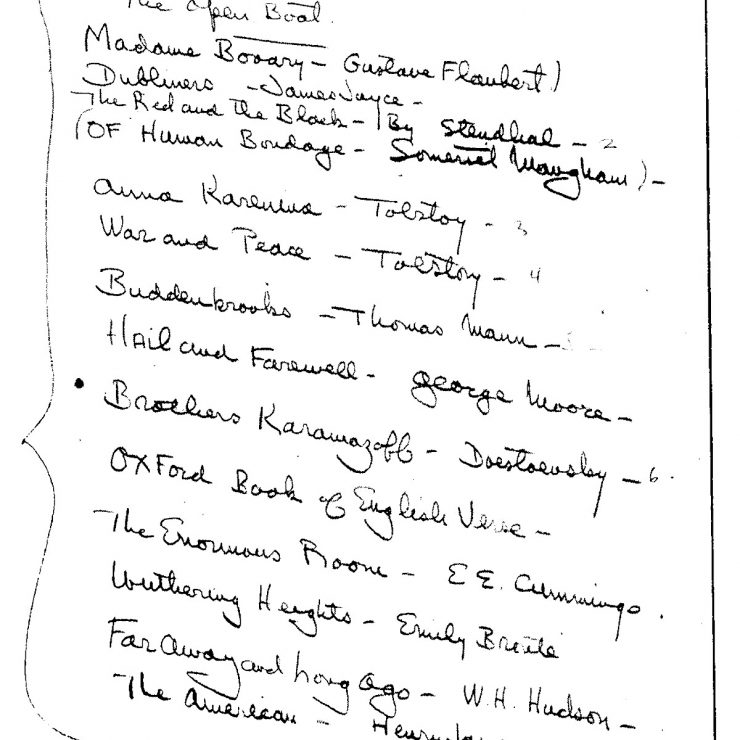 The Open Boat.
Madame Bovary - Gustave Flaubert)
Dubliners - James Joyce -
The Red and the Black - By Stendhal - 2
(OF Human Bondage - Somerset Maugham) -
Anna Karenina - Tolstoy - 3
War and Peace - Tolstoy - 4
Buddenbrooks - Thomas Mann - 5 -
Hail and Farewell - George Moore -
• Brothers Karamazoff - Doestoevsky - 6.
OXFord Book of English Verse -
The Enormous Room - E E. Cummings.
Wuthering Heights - Emily Bronte
Far Away and Long Ago - W.H. Hudson -
The American -